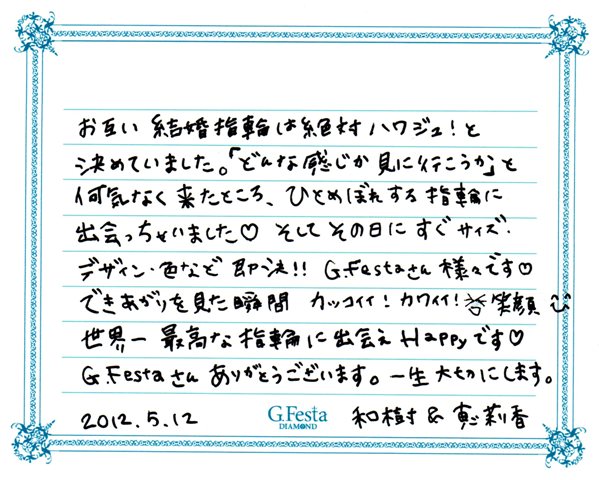 お互い 結婚指輪は絶対 ハワジュ！と
決めていました。「どんな感じか見に行こうか」と
何気なく来たところ、ひとめぼれする指輪に
出会っちゃいました♡ そしてその日にすぐサイズ・
デザイン・色など 即決!! G.Festaさん様々です♡
できあがりを見た瞬間 カッコイイ！カワイイ！笑顔
世界一 最高な指輪に出会え Happyです♡
G.Festaさん ありがとうございます。一生大切にします。
2012.5.12 G.Festa DIAMOND 和樹 & 恵莉香